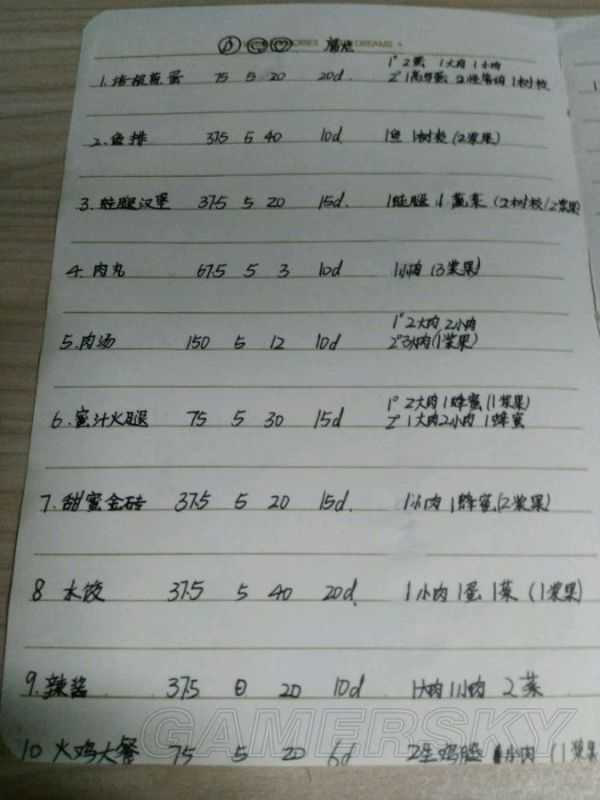 DREAMS 腐烂
1° 2蛋 1大肉 1小肉
1. 培根煎蛋 75 5 20 20d 2° 1高鸟蛋 2怪兽肉 1树枝
2. 鱼排 37.5 5 40 10d 1鱼 1树枝 (2浆果)
3. 蛙腿汉堡 37.5 5 20 15d. 1蛙腿 1蔬菜 (2树枝/2浆果)
4. 肉丸 67.5 5 3 10d 1小肉 (3浆果)
1° 2大肉 2小肉
5. 肉汤 150 5 12 10d 2° 3小肉(1浆果)
1° 2大肉 1蜂蜜 (1浆果)
6. 蜜汁火腿 75 5 30 15d 2° 1大肉2小肉 1蜂蜜
7. 甜蜜金砖 37.5 5 20 15d. 1小肉 1蜂蜜(2浆果)
8 水饺 37.5 5 40 20d. 1小肉 1蛋 1菜 (1浆果)
9. 辣酱 37.5 0 20 10d 1大肉 1小肉 2菜
GAMERSKY
10 火鸡大餐 75 5 20 6d 2生鸡腿 小肉 (1浆果